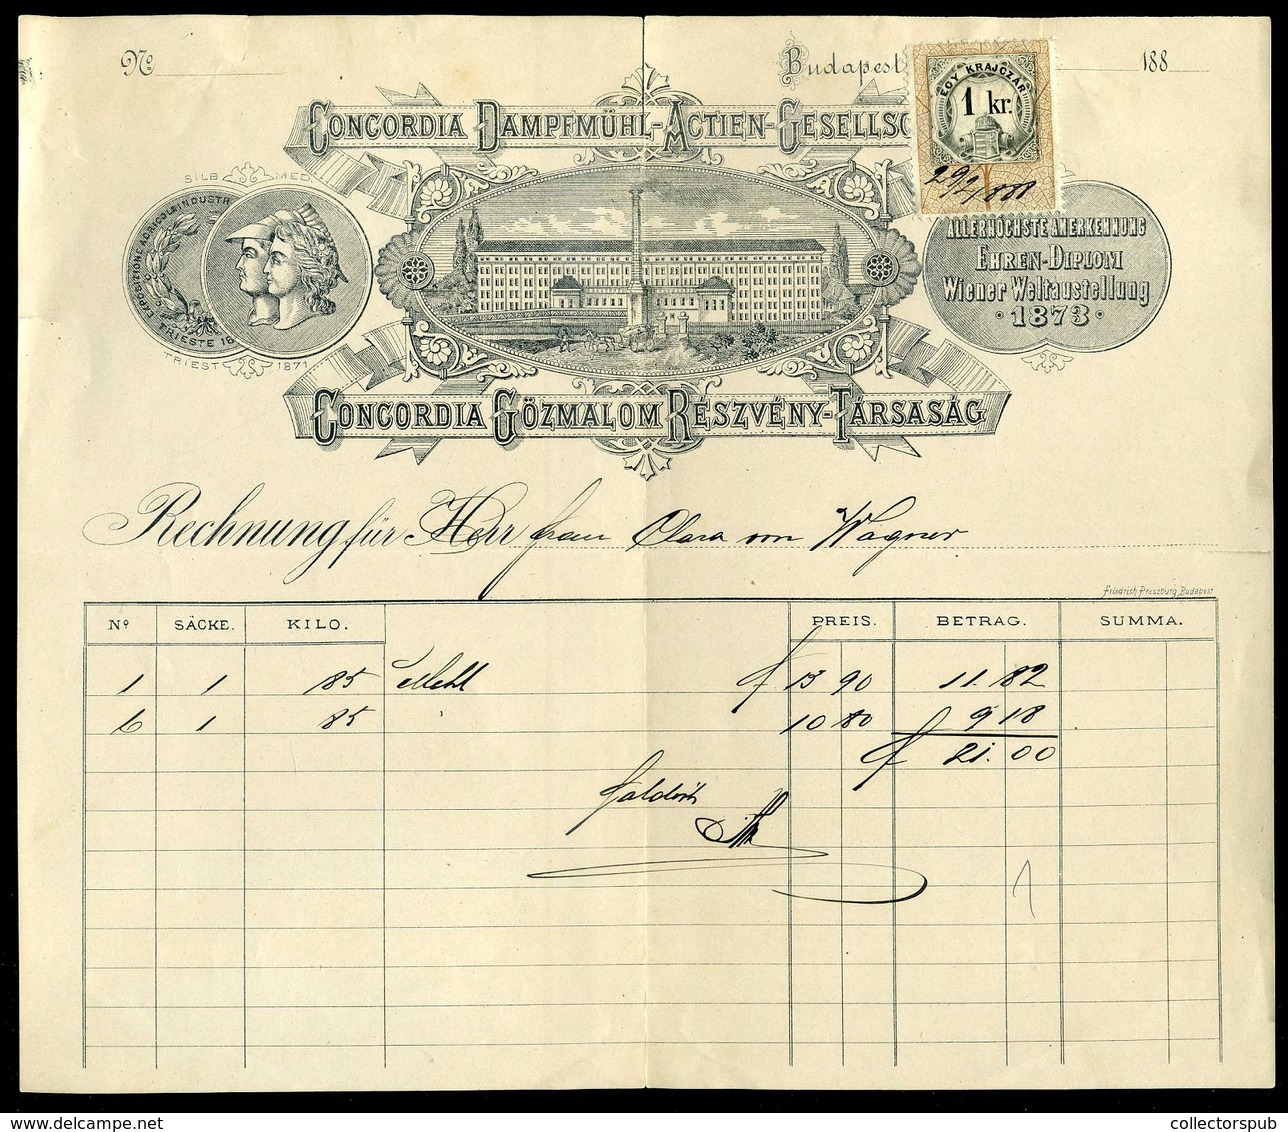 Nº Budapest 188
EGY KRAJCZÁR
1 kr.
29/2/888
CONCORDIA DAMPFMÜHL-ACTIEN-GESELLSC
SILB MED
EXPOSITION. AGRICOL & INDUSTR
TRIESTE 18
TRIEST 1871
ALLERHÖCHSTE ANERKENNUNG
EHREN-DIPLOM
Wiener Weltaustellung
· 1873 ·
CONCORDIA GÖZMALOM RÉSZVÉNY-TÁRSASÁG
Rechnung für Herr Frau Clara von Wagner
Friedrich Preszburg, Budapest
Nº SÄCKE. KILO. PREIS. BETRAG. SUMMA.
1 1 85 Mehl f 13 90 11. 82
6 1 85 10 80 9 18
f 21. 00
Saldirt
collectorspub